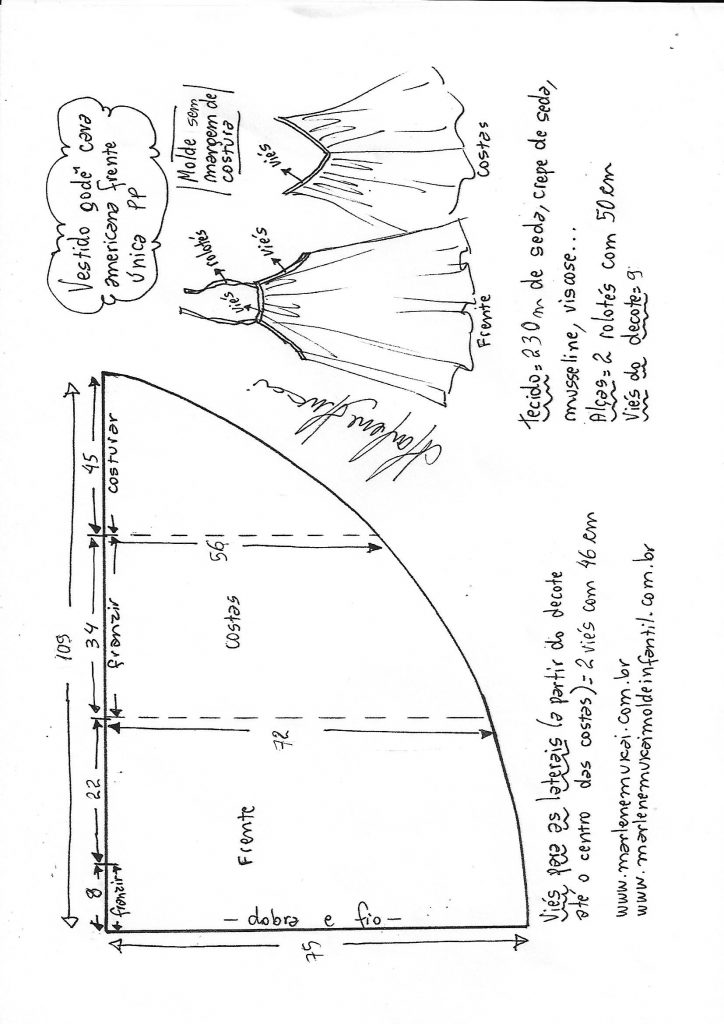 109
8
22
34
45
franzir
franzir
costurar
75
- dobra e fio -
Frente
72
Costas
56
Vestido godê cava
americana frente
única PP
Molde sem
margem de
costura
rolotés
viés
viés
Frente
viés
Costas
Marlene Mukai
Viés para as laterais (a partir do decote
até o centro das costas)= 2 viés com 46 cm
www.marlenemukai.com.br
www.marlenemukaimoldeinfantil.com.br
Tecido= 230 m de seda, crepe de seda,
musseline, viscose...
Alças= 2 rolotés com 50 cm
Viés do decote=